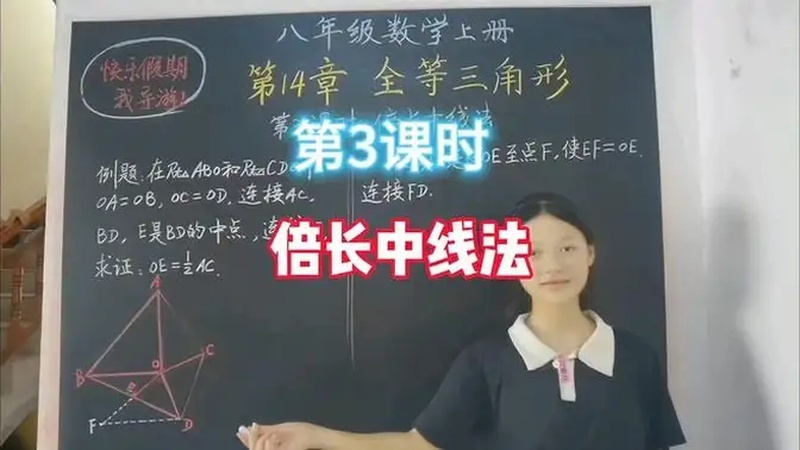 八年级数学上册
快乐假期
我导游!
第14章 全等三角形
第3课时
倍长中线法
例题:在Rt△ABO和Rt△CDO中
OA=OB, OC=OD, 连接AC,
BD, E是BD的中点, 连接
求证: OE=½AC.
OE至点F, 使EF=OE.
连接FD.
A
B
O
C
E
F
D